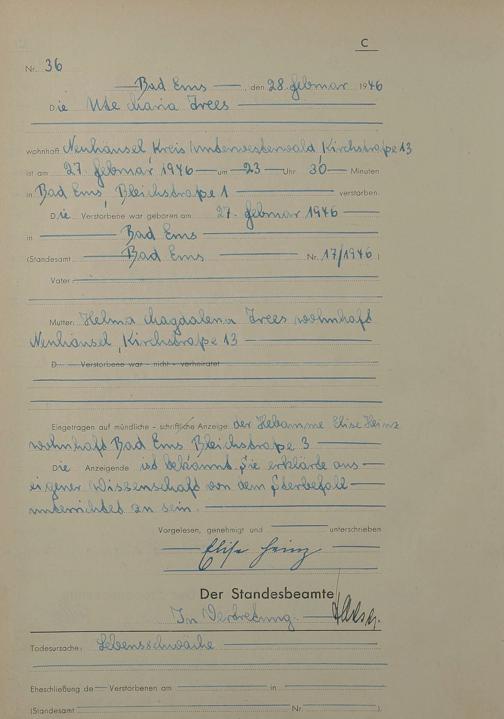 C
Nr. 36
Bad Ems, den 28. Februar 1946
Die Ute Maria Trees
wohnhaft Neuhäusel, Kreis Unterwesterwald, Kirchstraße 13
ist am 27. Februar 1946 um 23 Uhr 30 Minuten
in Bad Ems, Bleichstraße 1 verstorben.
Die Verstorbene war geboren am 27. Februar 1946
in Bad Ems
(Standesamt Bad Ems Nr. 17/1946)
Vater:
Mutter: Helma Magdalena Trees wohnhaft
Neuhäusel, Kirchstraße 13
D Verstorbene war - nicht - verheiratet
Eingetragen auf mündliche - schriftliche Anzeige der Hebamme Elise Heinz
wohnhaft Bad Ems Bleichstraße 3
Die Anzeigende ist bekannt. Sie erklärte aus
eigener Wissenschaft von dem Sterbefall
unterrichtet zu sein.
Vorgelesen, genehmigt und unterschrieben
Elise Heinz
Der Standesbeamte
In Vertretung.
Todesursache: Lebensschwäche
Eheschließung de Verstorbenen am in
(Standesamt Nr. ).